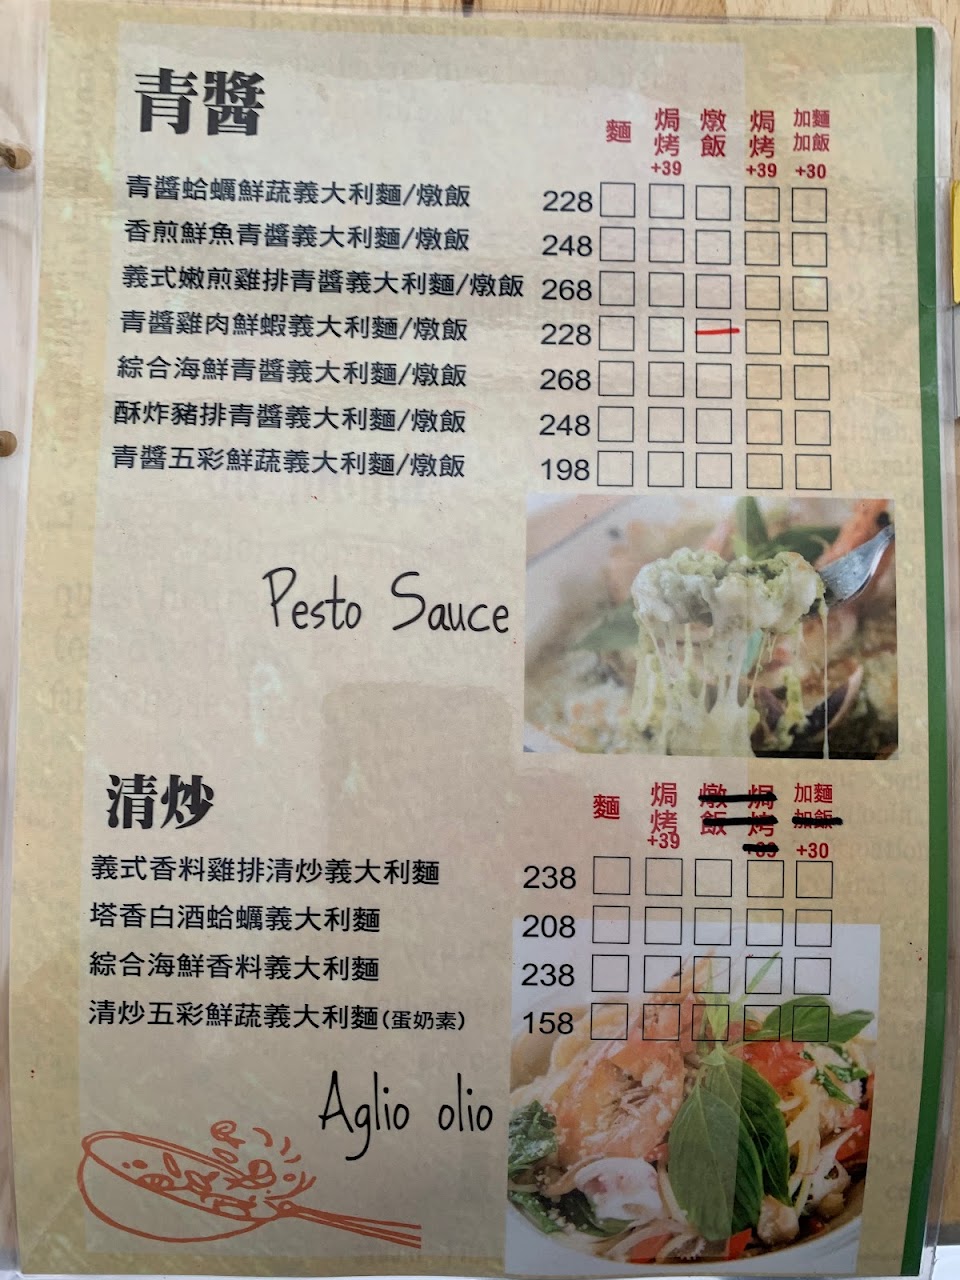 青醬
麵 焗烤+39 燉飯 焗烤+39 加麵加飯+30
青醬蛤蠣鮮蔬義大利麵/燉飯 228
香煎鮮魚青醬義大利麵/燉飯 248
義式嫩煎雞排青醬義大利麵/燉飯 268
青醬雞肉鮮蝦義大利麵/燉飯 228
綜合海鮮青醬義大利麵/燉飯 268
酥炸豬排青醬義大利麵/燉飯 248
青醬五彩鮮蔬義大利麵/燉飯 198
Pesto Sauce
清炒
麵 焗烤+39 燉飯 焗烤+39 加麵加飯+30
義式香料雞排清炒義大利麵 238
塔香白酒蛤蠣義大利麵 208
綜合海鮮香料義大利麵 238
清炒五彩鮮蔬義大利麵(蛋奶素) 158
Aglio olio